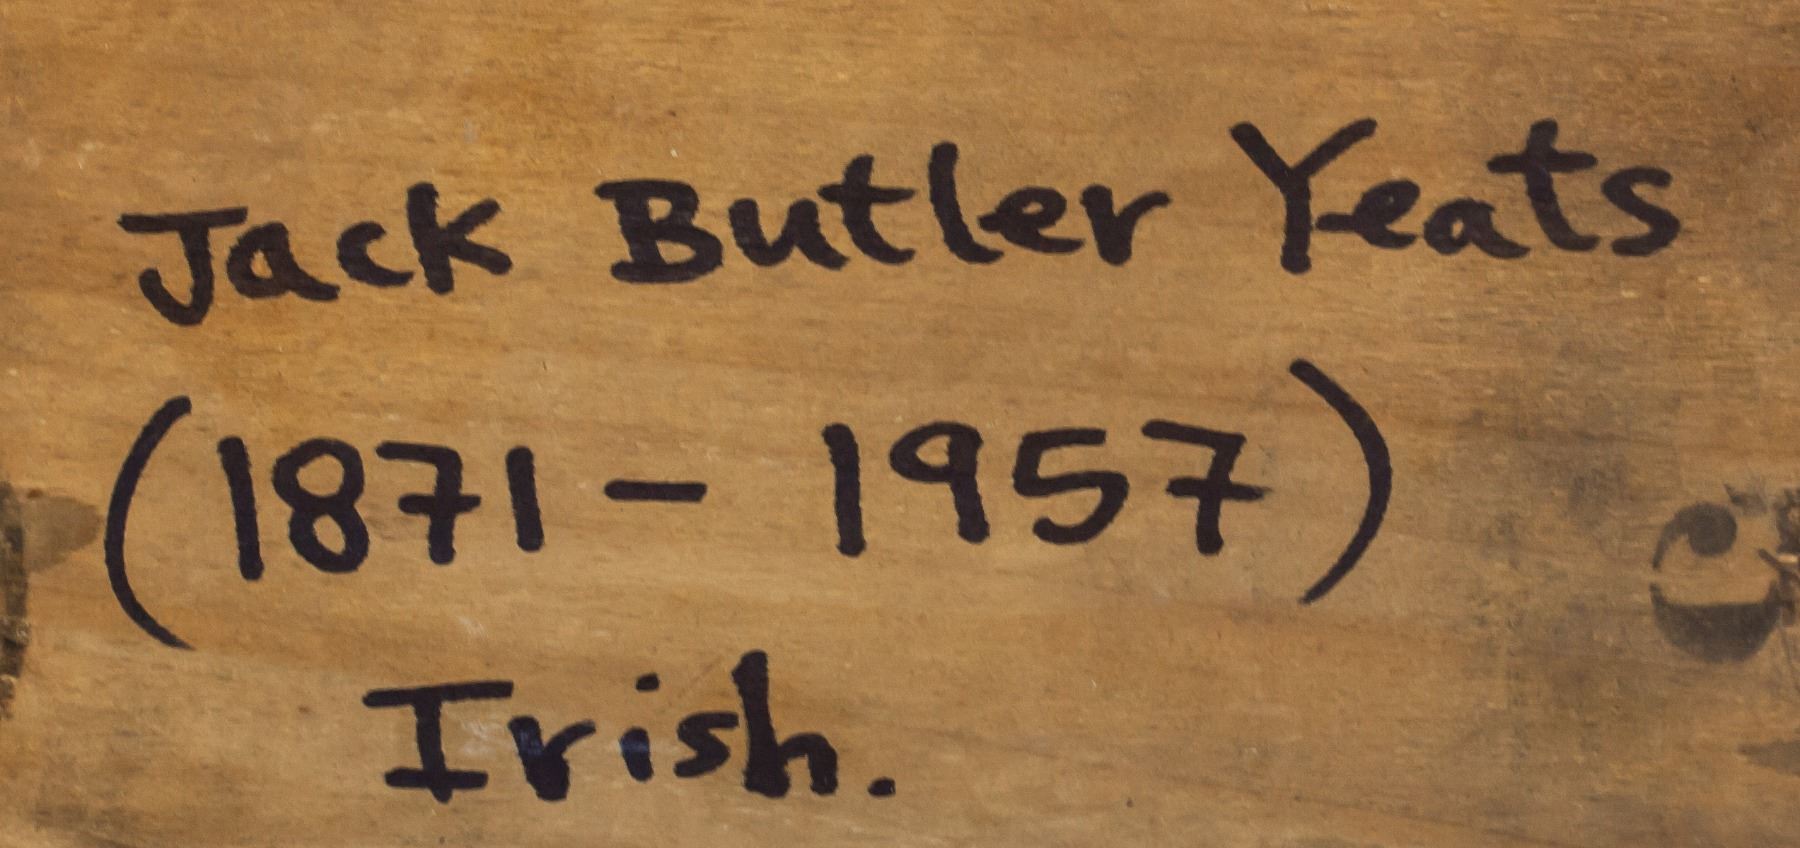 Jack Butler Yeats
(1871 - 1957)
Irish.